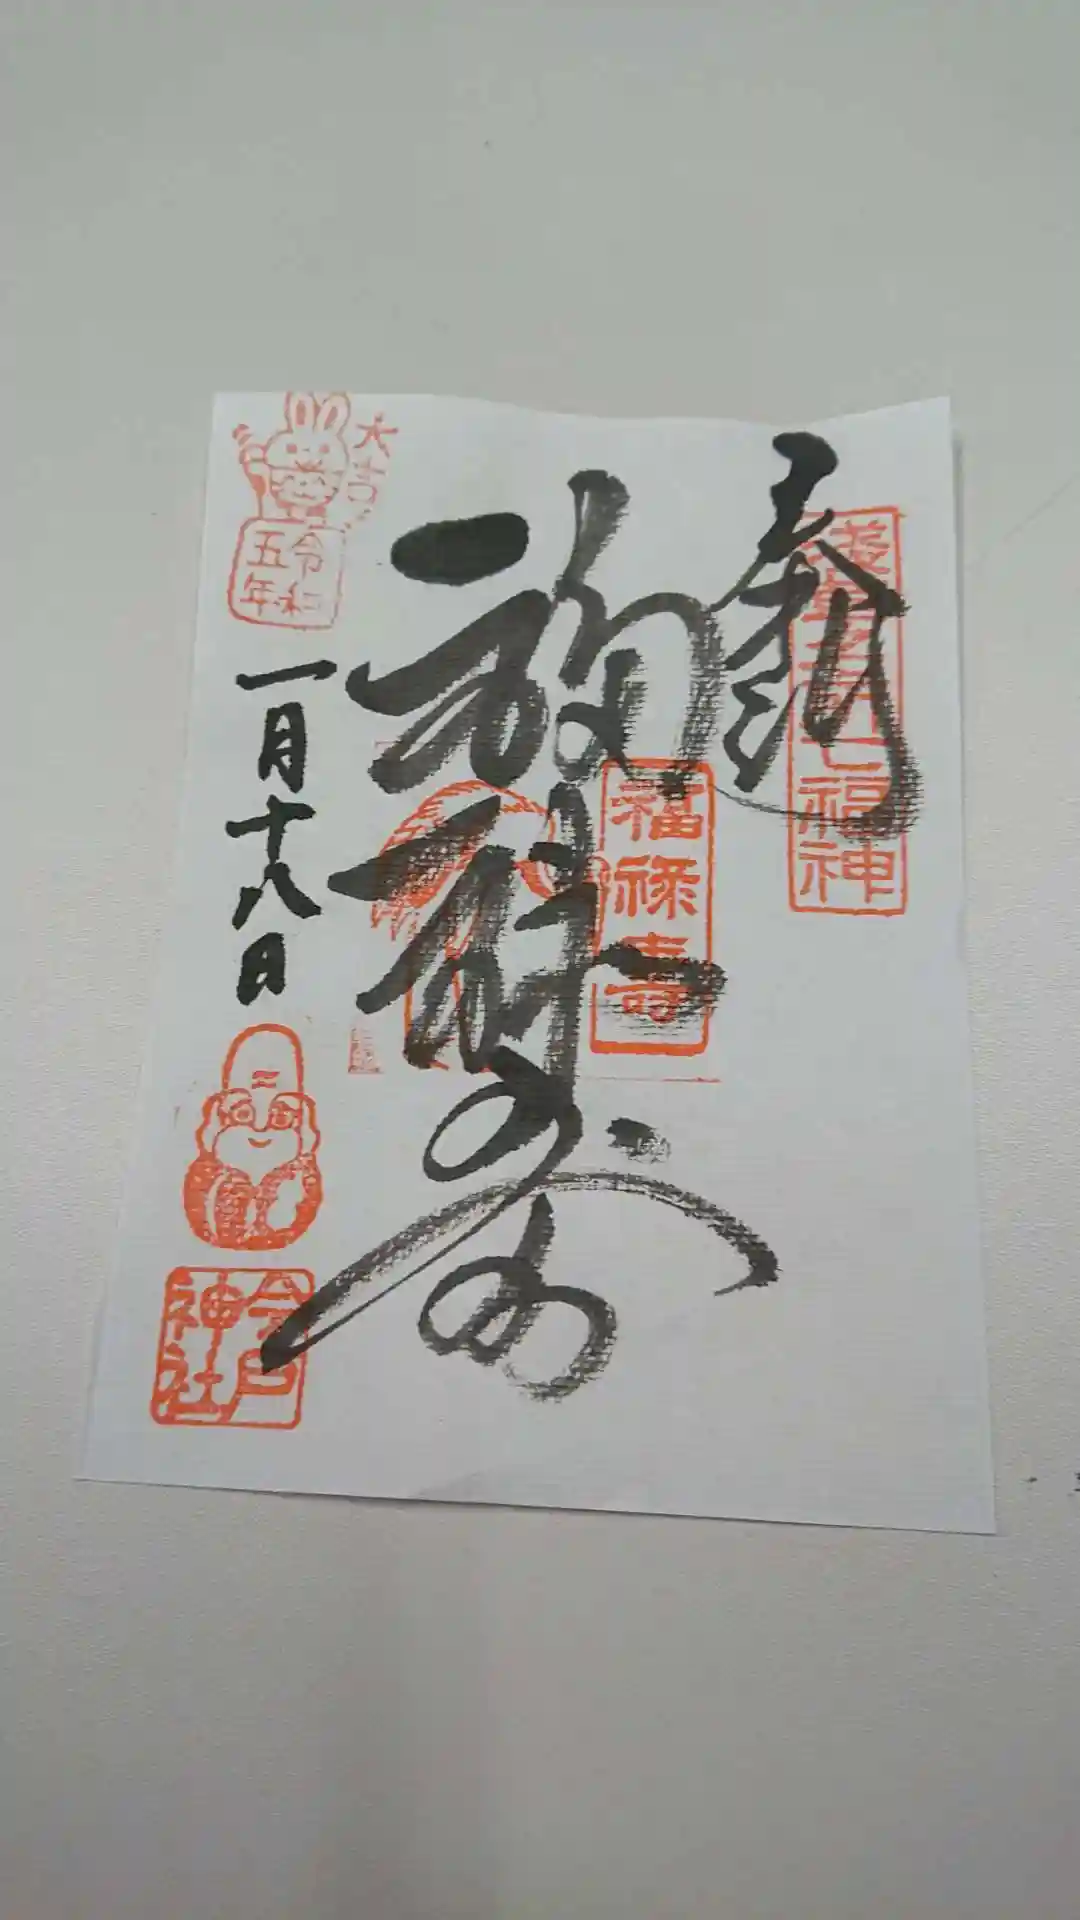 奉拝
浅草名所七福神
福禄寿
福禄壽
大吉
令和
五年
一月十八日
今戸
神社